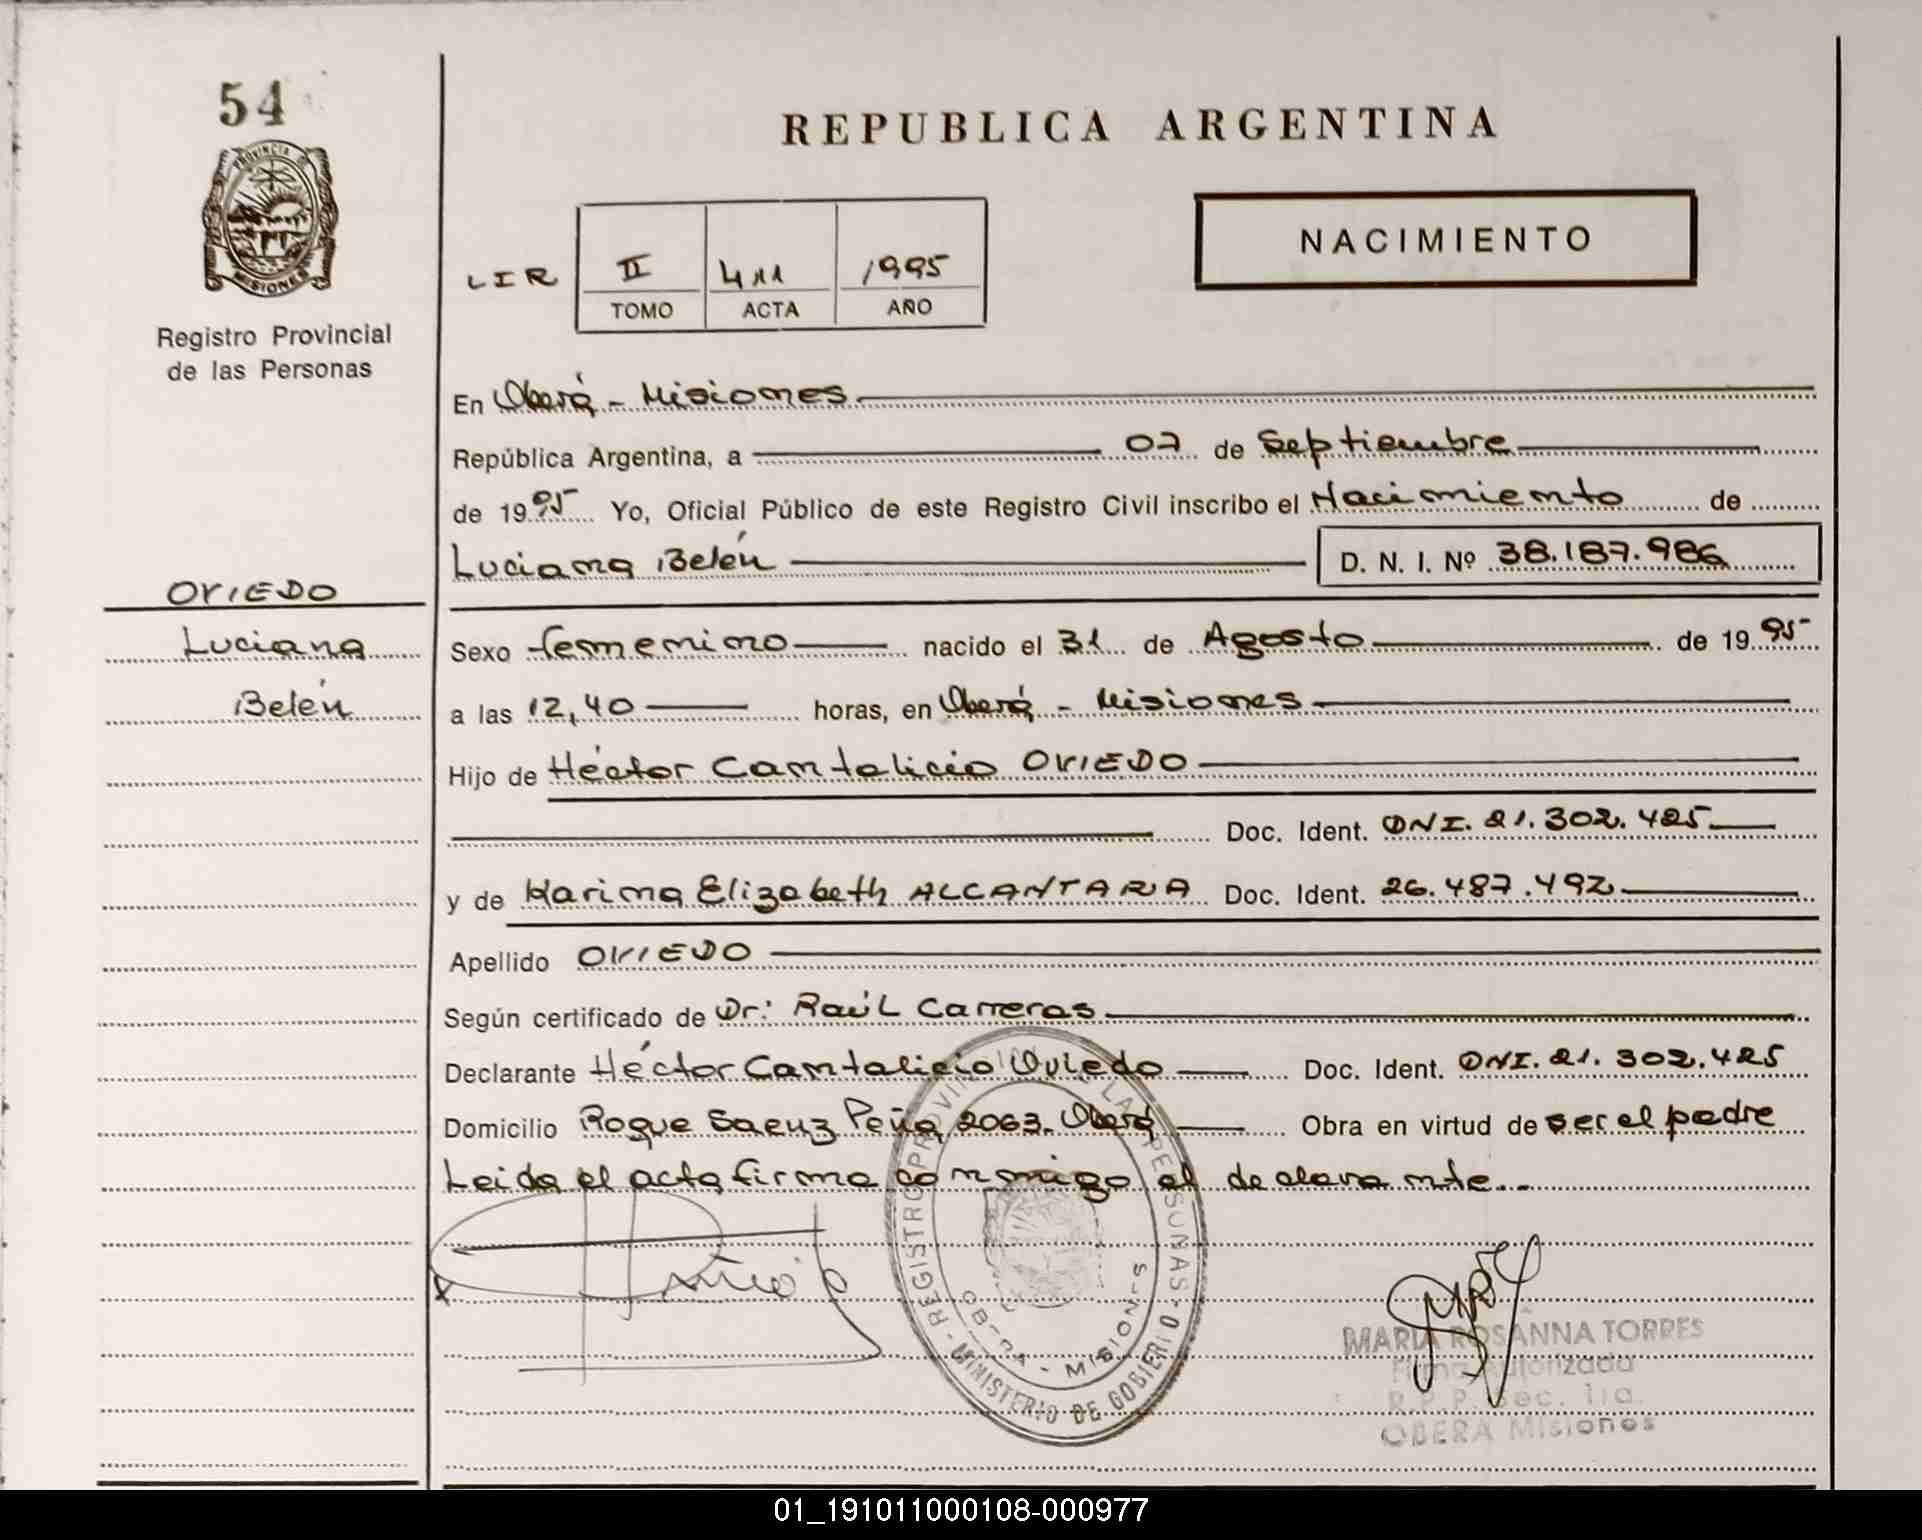 54
PROVINCIA DE
MISIONES
Registro Provincial
de las Personas
OVIEDO
Luciana
Belén
REPUBLICA ARGENTINA
LIR II 411 1995
TOMO ACTA AÑO
NACIMIENTO
En Oberá - Misiones
República Argentina, a 07 de Septiembre
de 1995 Yo, Oficial Público de este Registro Civil inscribo el Nacimiento de
Luciana Belén D. N. I. Nº 38.187.986
Sexo femenino nacido el 31 de Agosto de 1995
a las 12,40 horas, en Oberá - Misiones
Hijo de Héctor Cantalicio OVIEDO
Doc. Ident. DNI. 21.302.425
y de Karina Elizabeth ALCANTARA Doc. Ident. 26.487.492
Apellido OVIEDO
Según certificado de Dr: Raúl Carreras
Declarante Héctor Cantalicio Oviedo Doc. Ident. DNI. 21.302.425
Domicilio Roque Saenz Peña 2063. Oberá Obra en virtud de ser el padre
Leida el acta firma conmigo el declarante..
REGISTRO PROVINCIAL DE LAS PERSONAS
OBERA - MISIONES
MINISTERIO DE GOBIERNO
MARIA ROSANNA TORRES
Firma Autorizada
R.P.P. Sec. 1ra.
OBERA Misiones
01_191011000108-000977